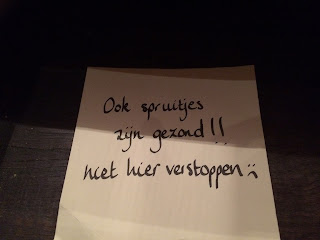 Ook spruitjes
zijn gezond!!
niet hier verstoppen :(